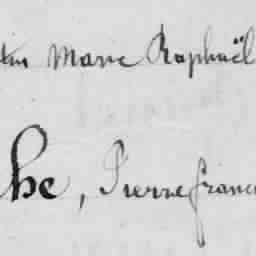 Marie Raphaël
he, Pierre franc